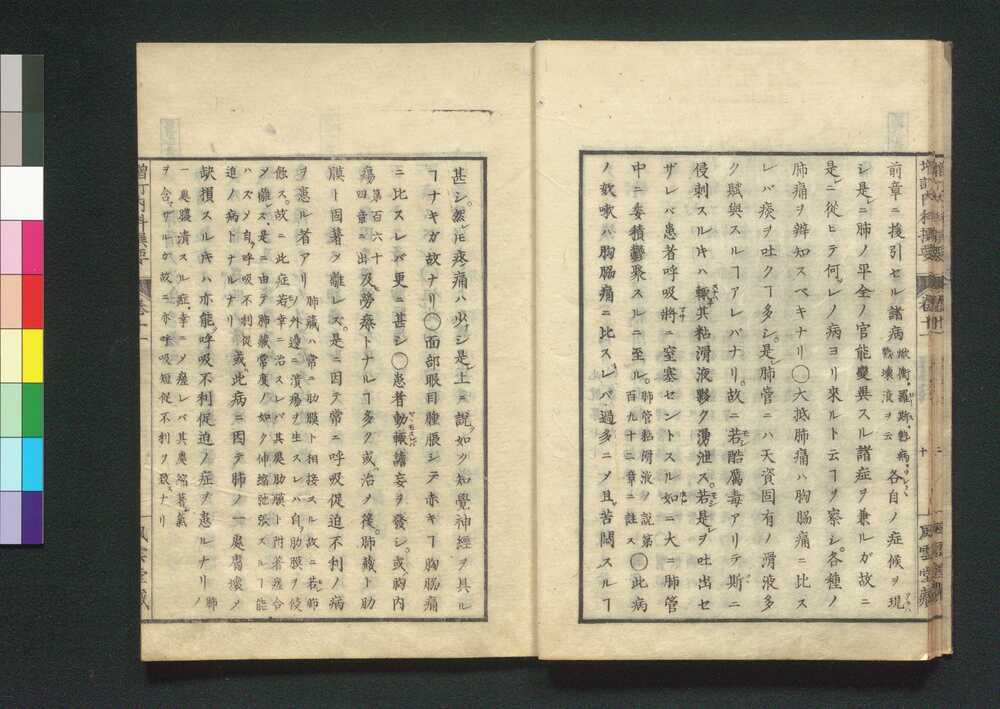 前章ニ援引セル諸病 各自ノ症候ヲ現
シ是ニ肺ノ平全ノ官能變異スル諸症ヲ兼ルガ故ニ
是ニ從ヒテ何レノ病ヨリ來ルト云ヿヲ察シ各種ノ
肺痛ヲ辨知スベキナリ〇大抵肺痛ハ胸膓痛ニ比ス
レバ痰ヲ吐クヿ多シ是レ肺管ニハ天資固有ノ滑液多
ク賦與スルヿアレバナリ故ニ若酷厲毒アリテ斯ニ
侵刺スル𪜈ハ輙其粘滑液夥ク湧泄ス若是ヲ吐出セ
ザレバ患者呼吸將ニ窒塞セントスル如ニ大ニ肺管
中ニ委積欝聚スルニ至ル 肺管粘滑液ノ說第百九十二章ニ註ス 〇此病
ノ欬嗽ハ胸膓痛ニ比スレバ過多ニメ且苦悶スルヿ
甚シ然𪜈疼痛ハ少シ是上ニ說如ク知覺神經ヲ具ル
ヿナキガ故ナリ〇面部眼目腫脹シテ赤キヿ胸膓痛
ニ比スレバ更ニ甚シ〇患者動輙譫妄ヲ發シ或胸内
瘍 第百六十四章ニ出 及勞瘵トナルヿ多ク或治ノ後肺藏ト肋
膜ト固著メ離レズ是ニ因テ常ニ呼吸促迫不利ノ病
ヲ患ル者アリ 肺藏ハ常ニ肋膜ト相接スル故ニ若肺
ノ外邊ニ潰瘍ヲ生スレハ自肋膜ヲ侵
蝕ス故ニ此症若幸ニ治スレバ其奥肋膜ト附著癒合
メ離ス是ニ由テ肺藏常度ノ如ク伸縮池張スルヿ能
ハズメ自呼吸不利促
迫ノ病トナルナリ 或此病ニ因テ肺ノ一處腐壞メ
缺損スル𪜈ハ亦能呼吸不利促迫ノ症ヲ患ルナリ 肺
一處膿潰スル症幸ニメ瘥レバ其奥縮著氣
ヲ含ザルガ故ニ亦呼吸短促不利ヲ致ナリ
增訂内科撰要 卷十一
風雲堂藏